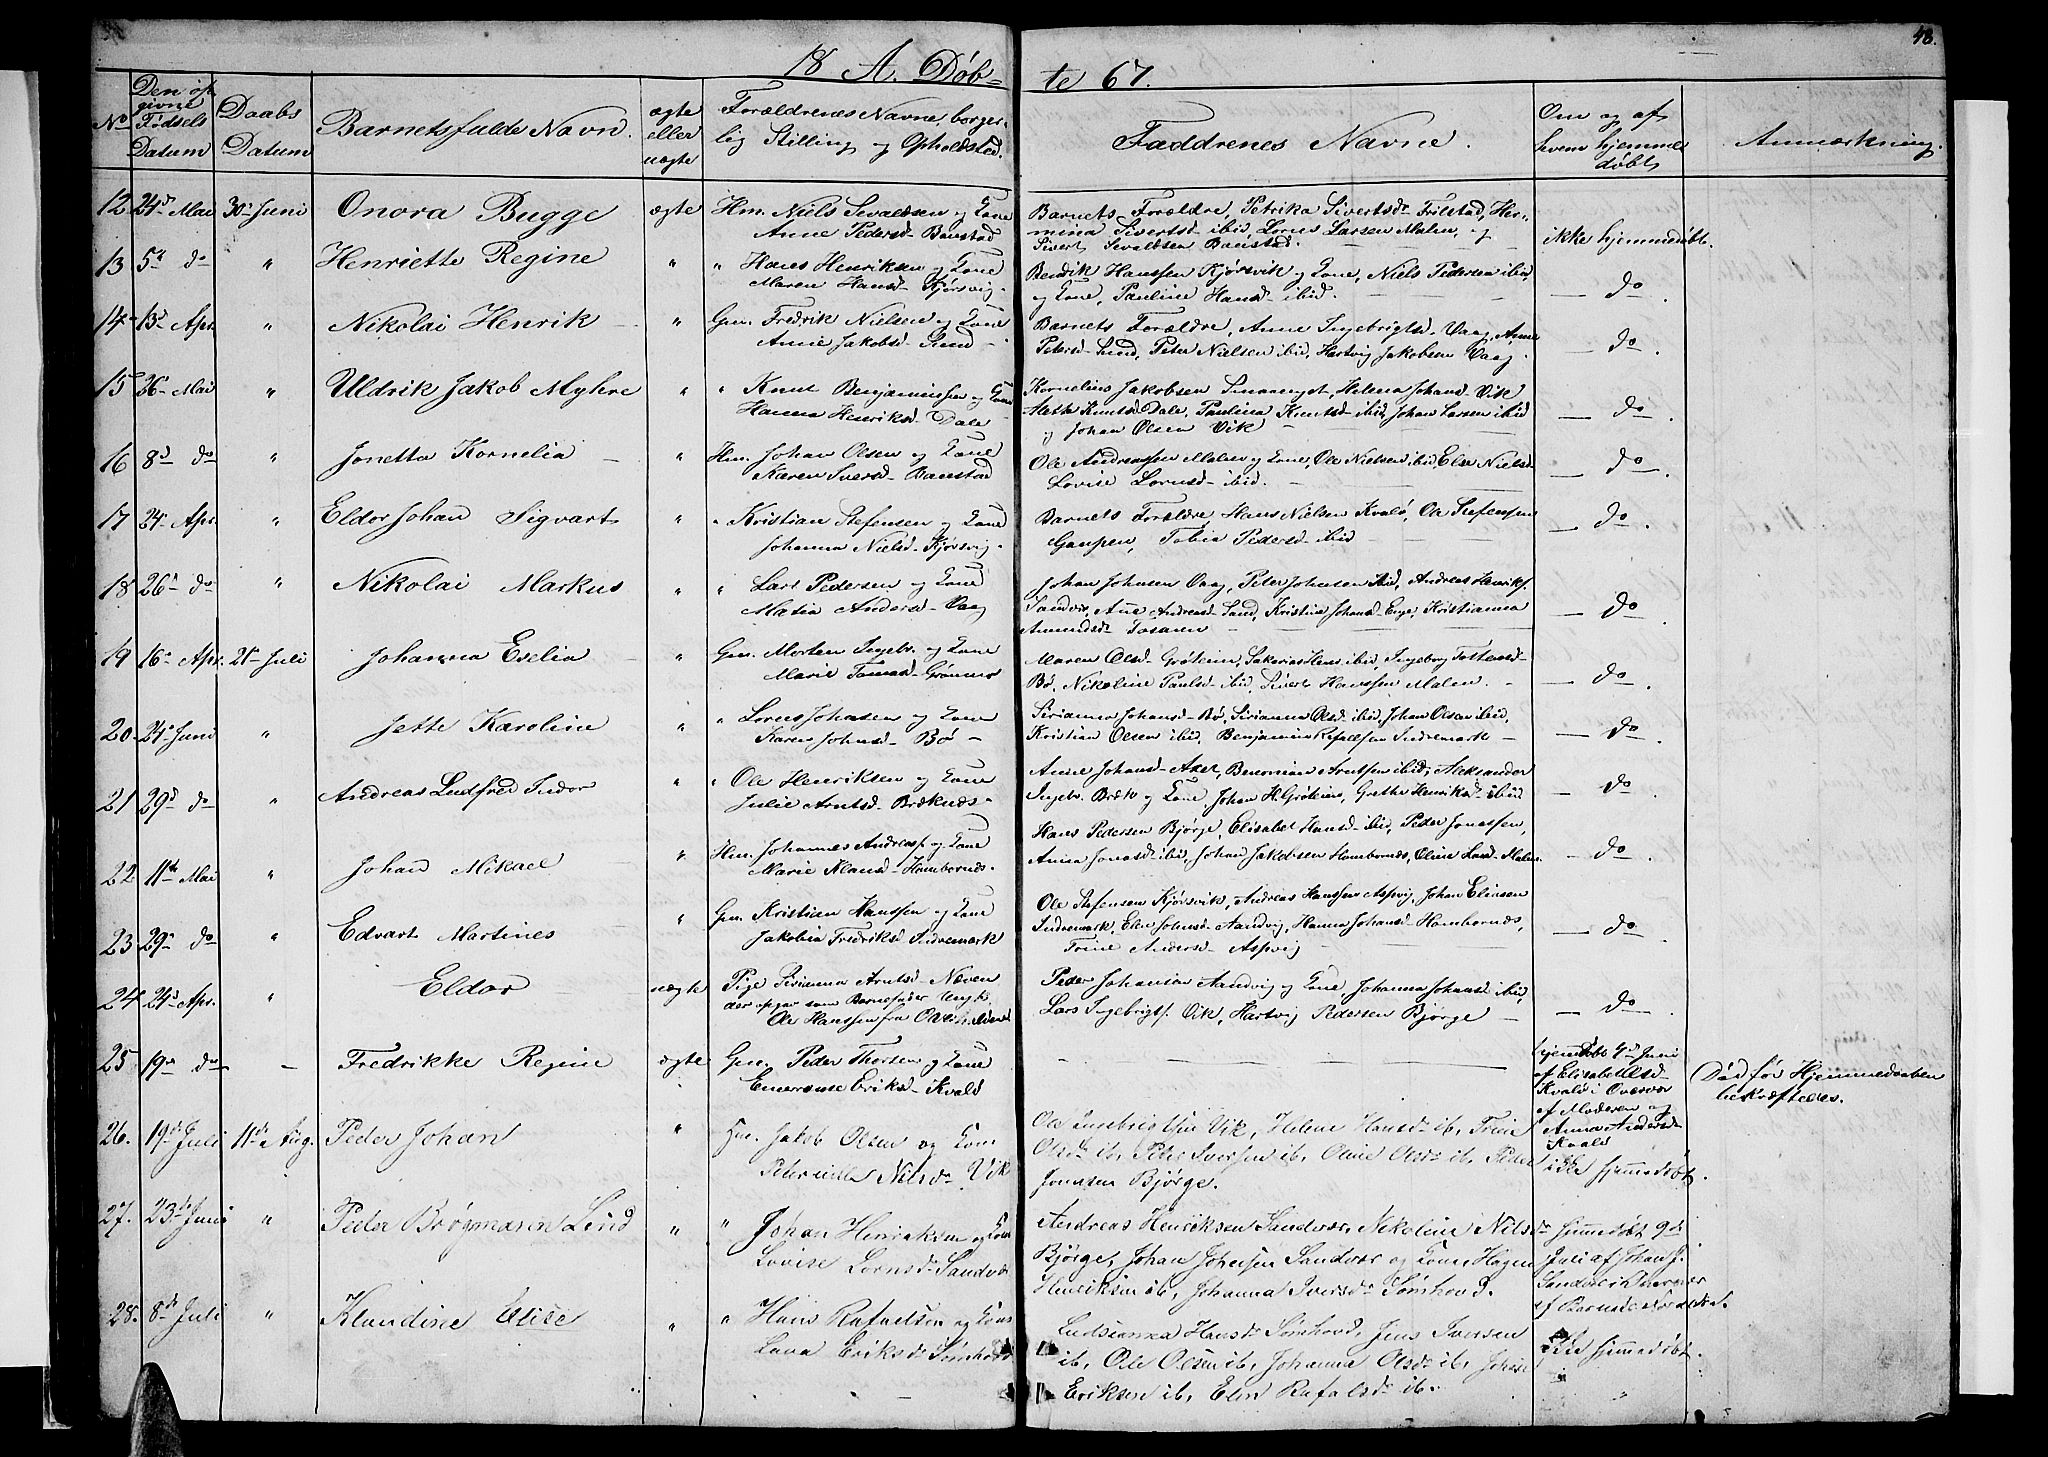 48.
18 A. Døb-
te 67.
No
Den op-
givne
Fødsels
Datum
Daabs
Datum
Barnets fulde Navn.
ægte
eller
uægte
Forældrenes Navne, borger-
lig Stilling og Opholdsted.
Faddrenes Navne.
Om og af
hvem hjemme
døbt
Anmærkning.
12 24d Mai 30d Juni Onora Bugge ægte Hm. Niels Sevaldsen og Kone
Anne Pedersd- Baustad
Barnets Forældre, Petrika Sivertsd- Frilstad, Her-
mina Sivertsd- ibid, Lorns Larsen Malen, og
Sivert Sevaldsen Baustad.
ikke hjemmedøbt.
13 5te do " Henriette Regine " " Hans Henriksen og Kone
Maren Hansd- Kjørsvig.
Bendik Hanssen Kjørsvik og Kone, Niels Pedersen ibid,
og Kone, Pauline Hansd- ibid.
do
14 13d Apr. " Nikolai Henrik " Gm. Fredrik Nielsen og Kone
Anne Jakobsd- Sund
Barnets Forældre, Anne Ingebrigtsd. Vaag, Anne
Petersd- Sund, Peter Nielsen ibid, Hartvig Jakobsen Vaag.
do
15 26 Mai " Uldrik Jakob Myhre " " Knut Benjaminsen og Kone
Hanna Henriksd- Dale
Kornelius Jakobsen, Helena Johansd- Vik
Mette Knutsd- Dale, Paulina Knutsd- ibid, Johan Larsen ibid
og Johan Olsen Vik
do
16 8d do " Jonetta Kornelia " Hm. Johan Olsen og Kone
Karen Iversd- Baustad
Ole Andreassen Malen og Kone, Ole Nielsen ibid, Else Nielsd-
Lovise Lornsd- ibid.
do
17 24 Apr. " Eldor Johan Sigvart " " Kristian Stefensen og Kone
Johanna Nielsd- Kjørsvig.
Barnets Forældre, Hans Nielsen Kvalø, Ole Stefensen
Gaupen, Tobia Pedersd- ibid
do
18 26d do " Nikolai Markus " " Lars Pedersen og Kone
Matia Andersd- Vaag
Johan Johnsen Vaag, Peter Johnsen ibid, Andreas Henriks.
Sandvær, Anne Andreasd- Sund, Kristine Johansd- , Kristianna
Amundsd- Tosaren
do
19 16d Apr. 21d Juli Johanna Eselia " Gm. Morten Ingebr. og Kone
Marie Tomasd- Grønmo
Maren Olsd- Grøteim, ibid, Ingeborg Tostensd-
Bø, Nikoline Paulsd- ibid, Sivert Hanssen Malen.
do
20. 24d Juni " Jette Karoline " " Lorns Johnsen og Kone
Karen Johnsd- Bø
Sirianna Johansd- Bø, Sirianna Olsd- ibid, Johan Olsen ibid,
Kristian Olsen ibid, Benjamin Rafaelsen Indremark
do
21 29d do " Andreas Ludfred Indor " " Ole Henriksen og Kone
Julie Arntsd- Bræknes.
Anne Johansd- Axet, Benonian Arntsen ibid, Aleksander
Ingebr. Bræk og Kone, Johan H. Grøteim, Grethe Henriksd- ibid
do
22 11te Mai " Johan Mikael " Hm. Johannes Andreass. og Kone
Marie Klausd- Hombornæs.
Hans Pedersen Bjørge, Elisabet Hansd- ibid, Peder Jonassen,
Anna Jonasd- ibid, Johan Jakobsen Hombornæs, Oline Malen.
do
23 29d do " Edvart Martines " Gm. Kristian Hanssen og Kone
Jakobia Fredriksd Indremark
Ole Stefensen Kjørsvik, Andreas Hanssen Aspvig, Johan Eliasen
Indremark, Elen Johnsd- Aandvig, Hanna Johansd- Hombornæs,
Trine Andersd- Aspvig
do
24 24d Apr. " Eldor uægte Pige Sirianna Arntsd- Neven
der opgav som Barnefader Ungk.
Ole Hanssen fra Overhalden
Peder Johansen Aandvig og Kone, Johanna Johansd- ibid,
Lars Ingebrigts. Vik, Hartvig Pedersen Bjørge
do
25 19de do - Fredrikke Regine ægte Gm. Peder Thorsen og Kone
Emeranse Eriksd- Kvalø
hjemdøbt 9de Juni
af Elisabet Olsd-
Kvalø i Overvær
af Moderen og
Anna Andersd-
Kvalø
Død før Hjemmedaaben
bekræftedes.
26. 19de Juli 11te Aug. Peder Johan " Hm. Jakob Olsen og Kone
Peternille Nilsdr Vik
Ole Vik, Helene Hansdr ib, Trine
Olsdr ib, Peter Iversen ib, Oline Olsdr ib, Peder
Jonassen Bjørge.
ikke hjemmedøbt.
27. 23de Juni " Peder Brøgmasen Lind " " Johan Henriksen og Kone
Lovise Lornsdr Sandvær
Andreas Henriksen Sandvær, Nekoline Nilsdr
Bjørge, Johan Johnsen Sandvær og Kone, Hagen
Henriksen ib, Johanna Iversdr Sømhovd.
Hjemmedøbt 9de
Juli af Johan J.
Sandvær i Overvær
af Barnets Forældre.
28. 8de Juli " Klaudine Elise " " Hans Rafaelsen og Kone
Lava Eriksdr Sømhovd
Ludsianna Hansdr Sømhovd, Jens Iversen
ib, Ole Olsen ib, Johanna Olsdr ib, Johan
Eriksen ib, Elen Rafalsdr ib.
ikke hjemmedøbt.